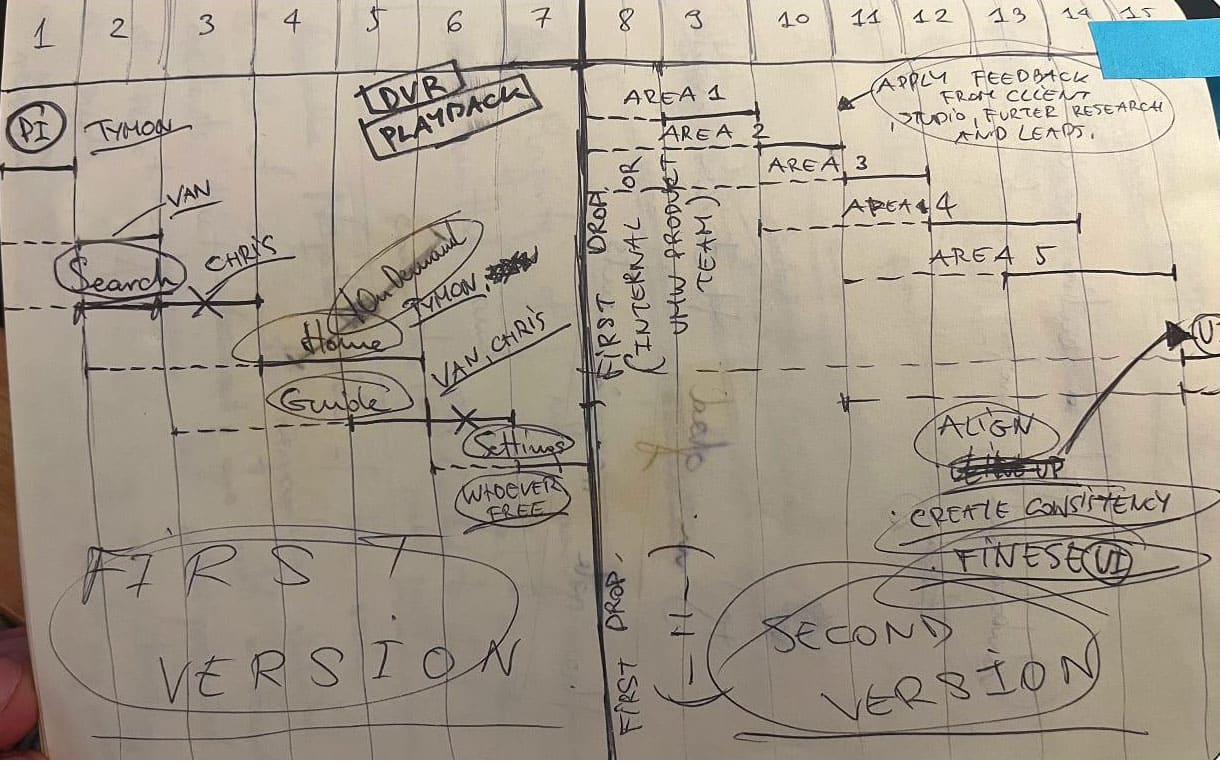 1 2 3 4 5 6 7 8 9 10 11 12 13 14 15
PI
TYMON
VAN
Search
CHRIS
DVR
PLAYBACK
On Demand
TYMON,
Home
VAN, CHRIS
Guide
Settings
WHOEVER
FREE
FIRST
VERSION
FIRST DROP
(INTERNAL OR
UMW PRODUCT
TEAM)
FIRST DROP.
(— 11 —)
AREA 1
AREA 2
AREA 3
AREA 4
AREA 5
APPLY FEEDBACK
FROM CLIENT
, STUDIO, FURTER RESEARCH
AND LEADS.
ALIGN
CREATE CONSISTENCY
FINESE UI
SECOND
VERSION